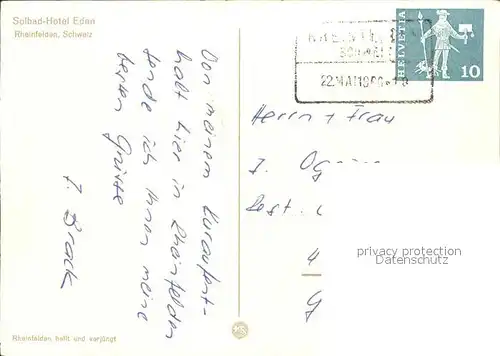 Solbad-Hotel Eden
Rheinfelden, Schweiz
Von meinem Kuraufent-
halt hier in Rheinfelden
sende ich Ihnen meine
besten Grüsse
J. Brack
Rheinfelden heilt und verjüngt
SCHWEIZ
22.MAI 19
HELVETIA
10
Herrn + Frau
J. Og
Rest.
4
G
privacy protection
Datenschutz